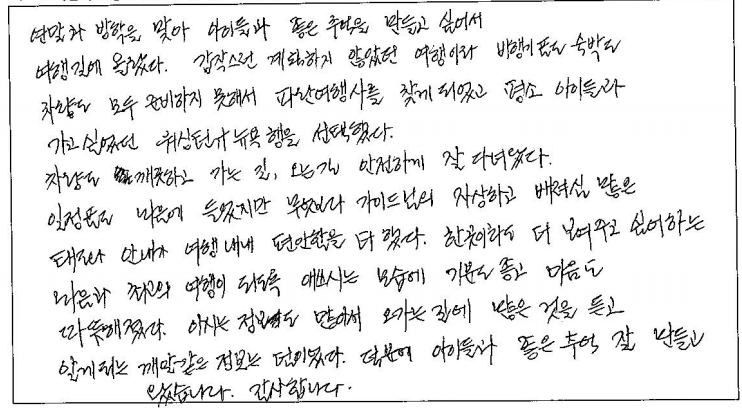 연말과 방학을 맞아 아이들과 좋은 추억을 만들고 싶어서
여행길에 올랐다. 갑작스런 계획하지 않았던 여행이라 비행기표도 숙박도
차량도 모두 준비하지 못해서 파란여행사를 찾게 되었고 평소 아이들과
가고 싶었던 워싱턴과 뉴욕 행을 선택했다.
차량도 깨끗하고 가는 길, 오는길 안전하게 잘 다녀왔다.
일정표도 마음에 들었지만 무엇보다 가이드님의 자상하고 배려심 많은
태도와 안내가 여행 내내 편안함을 더 했다. 한곳이라도 더 보여주고 싶어하는
마음과 최고의 여행이 되도록 애쓰시는 모습에 기분도 좋고 마음도
따뜻해졌다. 아시는 정보도 많아서 오가는 길에 많은 것을 듣고
알게되는 깨알같은 정보는 덤이었다. 덕분에 아이들과 좋은 추억 잘 만들고
왔습니다. 감사합니다.